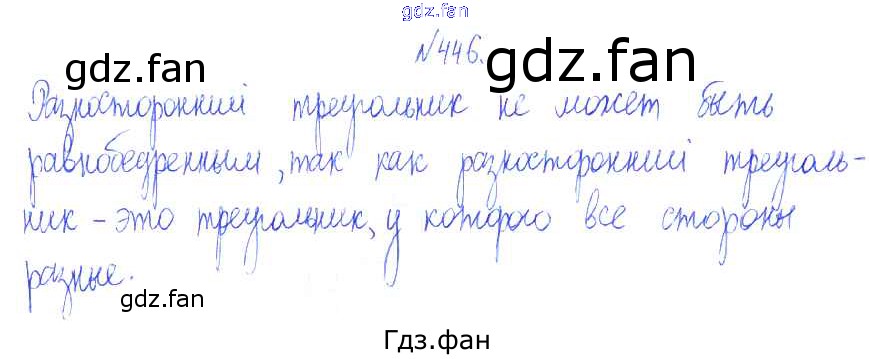 gdz.fan
№446.
gdz.fan
gdz.fan
Разносторонний треугольник не может быть
равнобедренным, так как разносторонний треуголь-
ник – это треугольник, у которого все стороны
разные.
gdz.fan
Гдз.фан